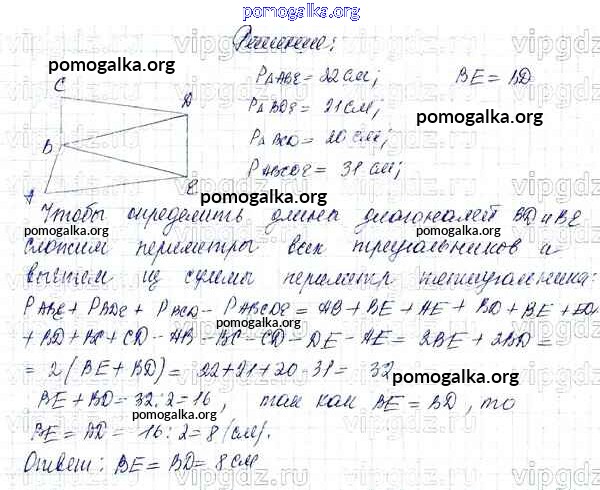 pomogalka.org
Решение:
pomogalka.org
P△ABE = 22 см; BE = BD
C
P△BDE = 21 см;
D
pomogalka.org
B
P△BCD = 20 см;
PABCDE = 31 см;
E
A
pomogalka.org
Чтобы определить длины диагоналей BD и BE
pomogalka.org
сложим периметры всех треугольников и
вычтем из суммы периметр пятиугольника:
PABE + PBDE + PBCD - PABCDE = AB + BE + AE + BD + BE + ED +
pomogalka.org
+ BD + BC + CD - AB - BC - CD - DE - AE = 2BE + 2BD =
= 2(BE + BD) = 22+21+20-31 = 32
pomogalka.org
BE + BD = 32 : 2 = 16, так как BE = BD, то
pomogalka.org
BE = BD = 16 : 2 = 8 (см).
Ответ: BE = BD = 8 см
pomogalka.org